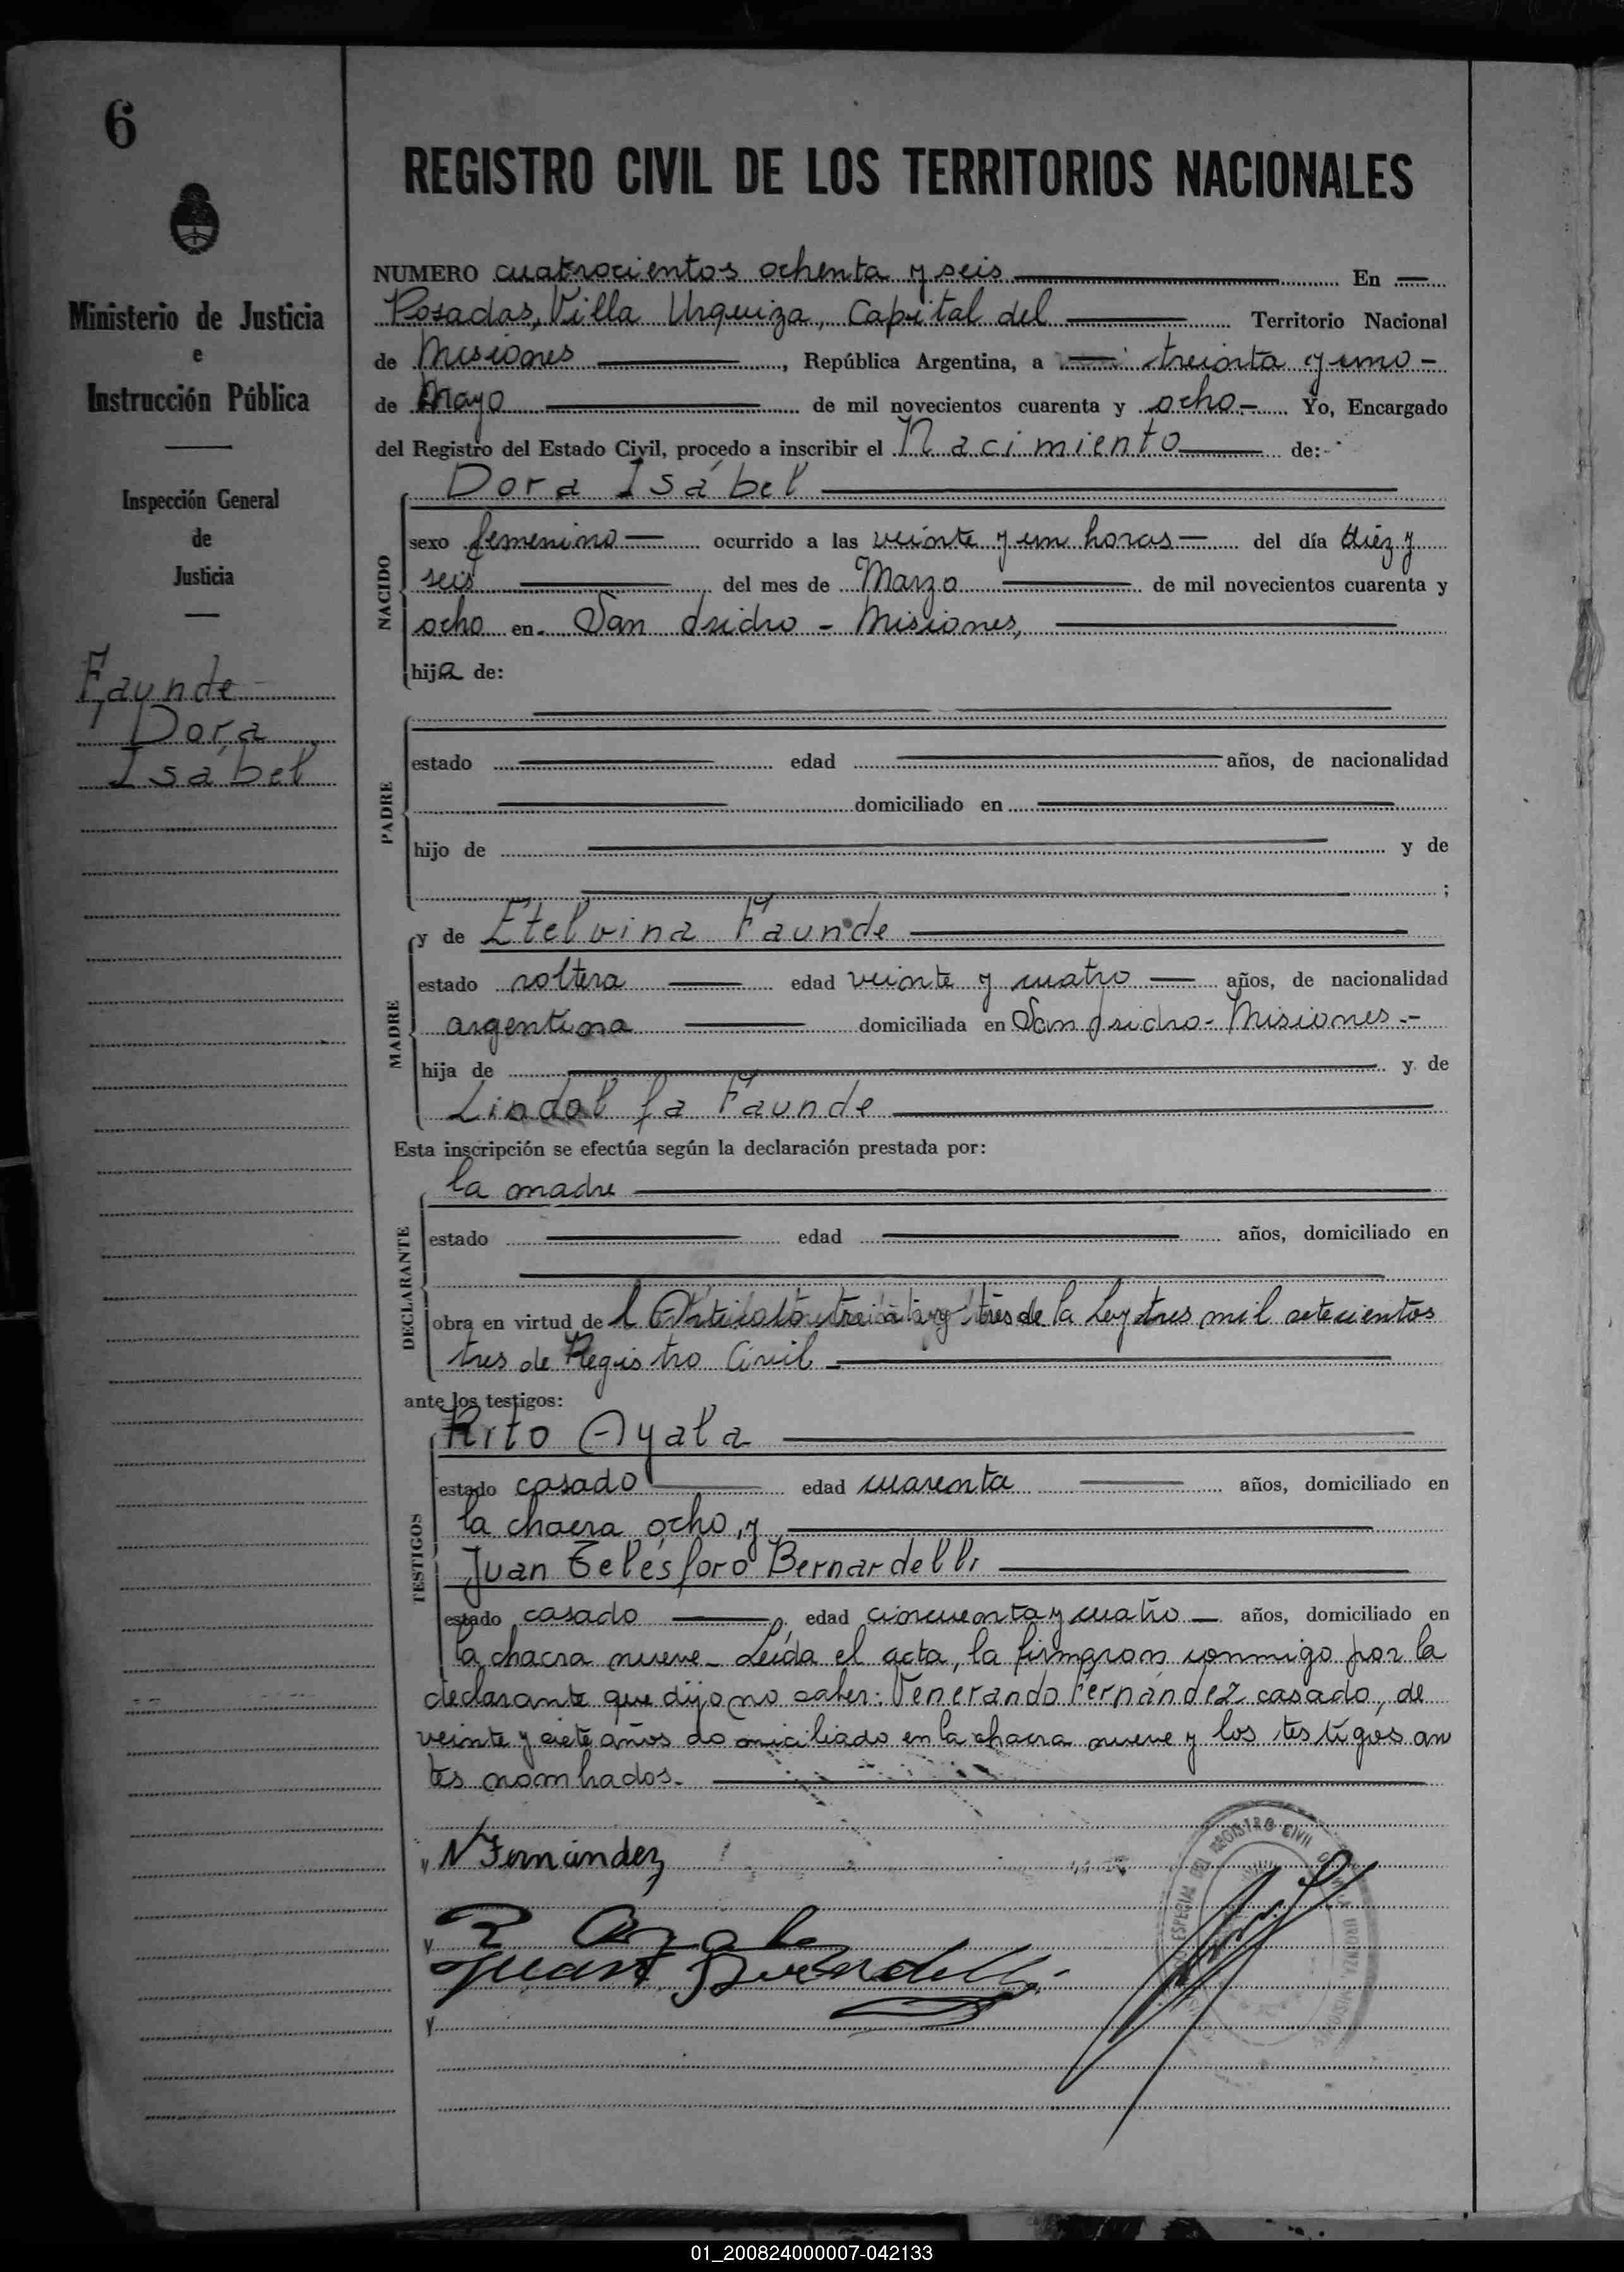 6
Ministerio de Justicia
e
Instrucción Pública
Inspección General
de
Justicia
Faunde
Dora
Isabel
REGISTRO CIVIL DE LOS TERRITORIOS NACIONALES
NUMERO cuatrocientos ochenta y seis En
Posadas, Villa Urquiza, Capital del Territorio Nacional
de Misiones, República Argentina, a treinta y uno
de Mayo de mil novecientos cuarenta y ocho Yo, Encargado
del Registro del Estado Civil, procedo a inscribir el Nacimiento de:
Dora Isabel
NACIDO
sexo femenino ocurrido a las veinte y un horas del día diez y
seis del mes de Marzo de mil novecientos cuarenta y
ocho en San Isidro - Misiones,
hija de:
PADRE
estado edad años, de nacionalidad
domiciliado en
hijo de y de
;
MADRE
y de Etelvina Faunde
estado soltera edad veinte y cuatro años, de nacionalidad
argentina domiciliada en San Isidro - Misiones.-
hija de y de
Lindolfa Faunde
Esta inscripción se efectúa según la declaración prestada por:
DECLARANTE
la madre
estado edad años, domiciliado en
obra en virtud del Artículo treinta y tres de la Ley tres mil setecientos
tres de Registro Civil
ante los testigos:
TESTIGOS
Rito Ayala
estado casado edad cuarenta años, domiciliado en
la chacra ocho, y
Juan Telésforo Bernardelli
estado casado, edad cincuenta y cuatro años, domiciliado en
la chacra nueve - Leída el acta, la firmaron conmigo por la
declarante que dijo no saber: Venerando Fernández casado, de
veinte y siete años domiciliado en la chacra nueve y los testigos an
tes nombrados.
N Fernández
y R Ayala
Juan Bernardelli
y
REGISTRO CIVIL
01_200824000007-042133